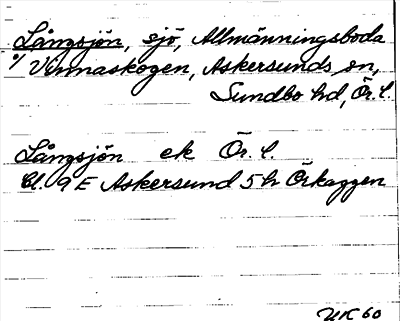 Långsjön, sjö, Allmänningsboda
1/ Vinnaskogen, Askersunds sn,
Sundbo hd, Ör. l.
Långsjön ek Ör. l.
Bl. 9E Askersund 5h Örkaggen
UK 60